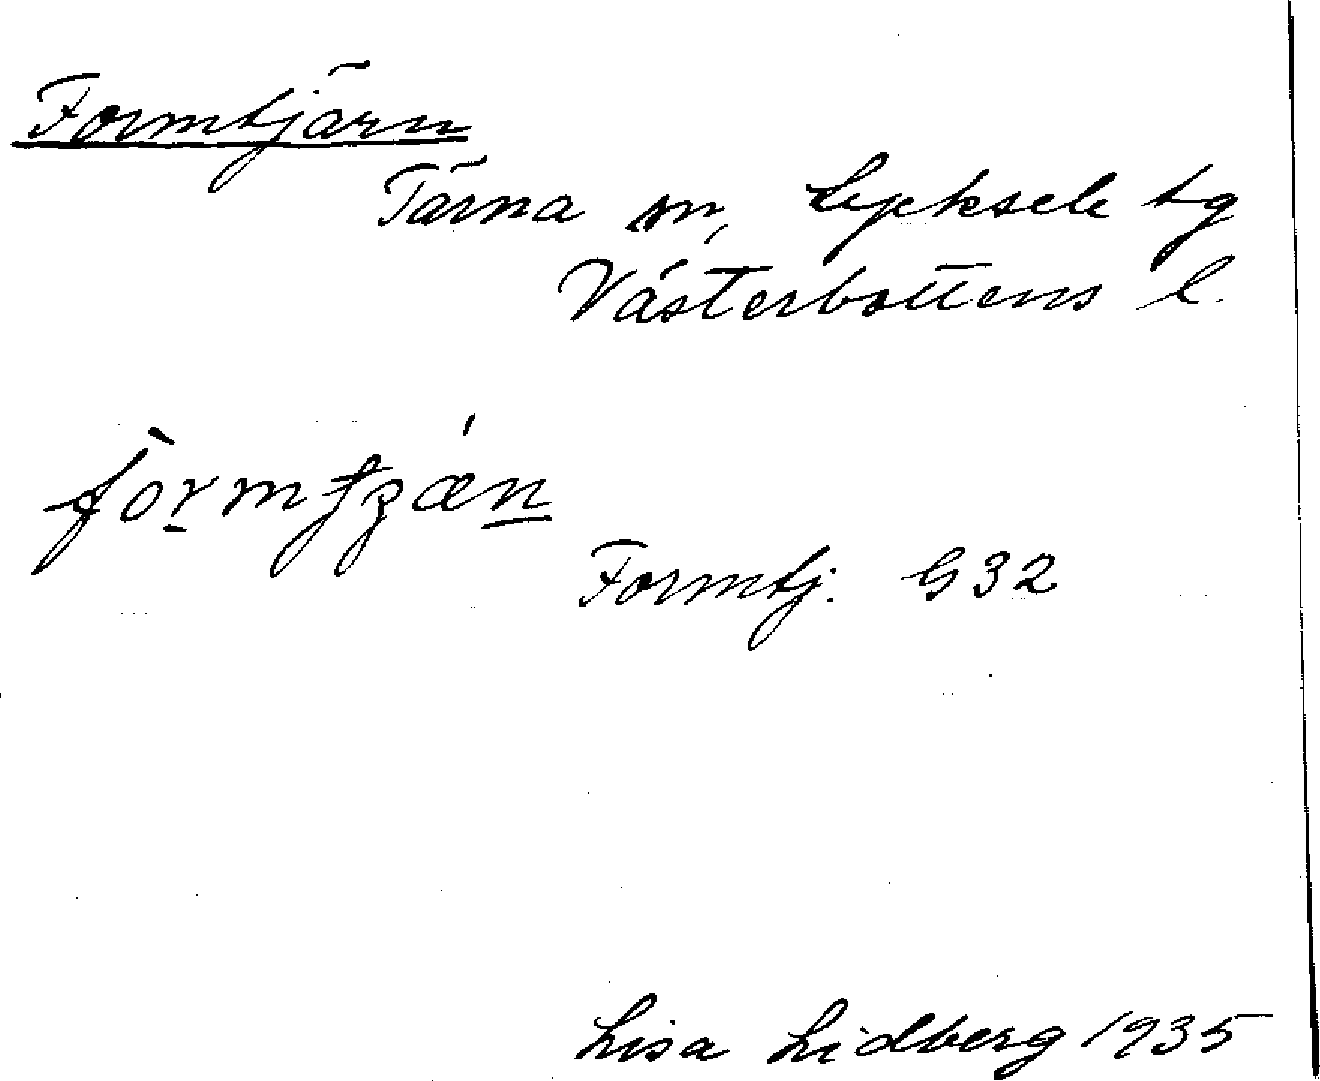 Formtjärn
Tärna sn, Lycksele tg
Västerbottens l.
Formtj. G32
Lisa Lidberg 1935